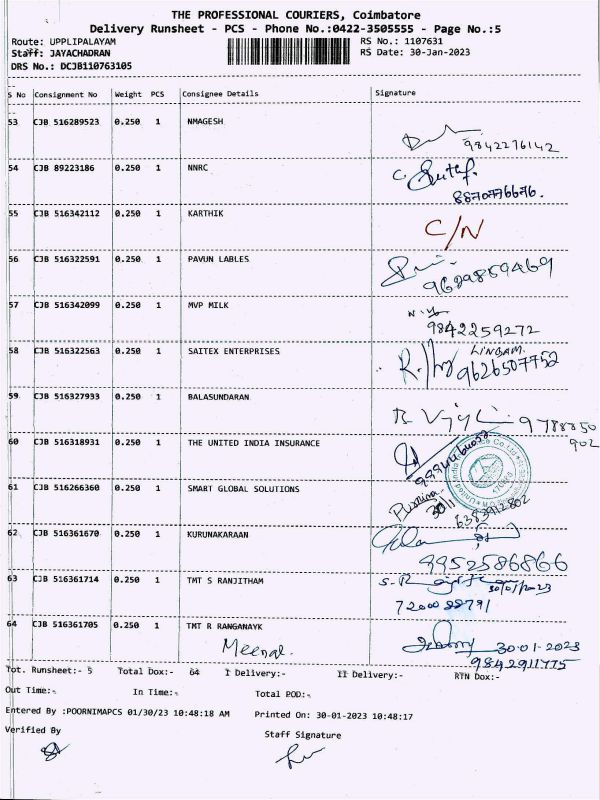 THE PROFESSIONAL COURIERS, Coimbatore
Delivery Runsheet - PCS - Phone No.:0422-3505555 - Page No.:5
Route: UPPLIPALAYAM RS No.: 1107631
Staff: JAYACHADRAN RS Date: 30-Jan-2023
DRS No.: DCJB110763105
S No Consignment No Weight PCS Consignee Details Signature
53 CJB 516289523 0.250 1 NMAGESH
9842276142
54 CJB 89223186 0.250 1 NNRC
8870776676.
55 CJB 516342112 0.250 1 KARTHIK
C/N
56 CJB 516322591 0.250 1 PAVUN LABLES
9629859469
57 CJB 516342099 0.250 1 MVP MILK
9842259272
58 CJB 516322563 0.250 1 SAITEX ENTERPRISES
LINGAM
9626507752
59 CJB 516327933 0.250 1 BALASUNDARAN
9788850
902
60 CJB 516318931 0.250 1 THE UNITED INDIA INSURANCE
61 CJB 516266360 0.250 1 SMART GLOBAL SOLUTIONS
30/1
6383912802
62 CJB 516361670 0.250 1 KURUNAKARAAN
9952586866
63 CJB 516361714 0.250 1 TMT S RANJITHAM
30/01/2023
64 CJB 516361705 0.250 1 TMT R RANGANAYK
Meena.
30-01-2023
9842911775
Tot. Runsheet:- 5 Total Dox:- 64 I Delivery:- II Delivery:- RTN Dox:-
Out Time:- In Time:- Total POD:-
Entered By :POORNIMAPCS 01/30/23 10:48:18 AM Printed On: 30-01-2023 10:48:17
Verified By Staff Signature